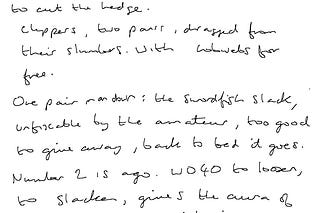 to cut the hedge.
Clippers, two pairs, dragged from
their slumbers. With cobwebs for
free.
One pair : the swordfish slack,
unfixable by the amateur, too good
to give away, back to bed it goes.
Number 2 is a go. WD40 to loosen,
to slacken, gives the aura of